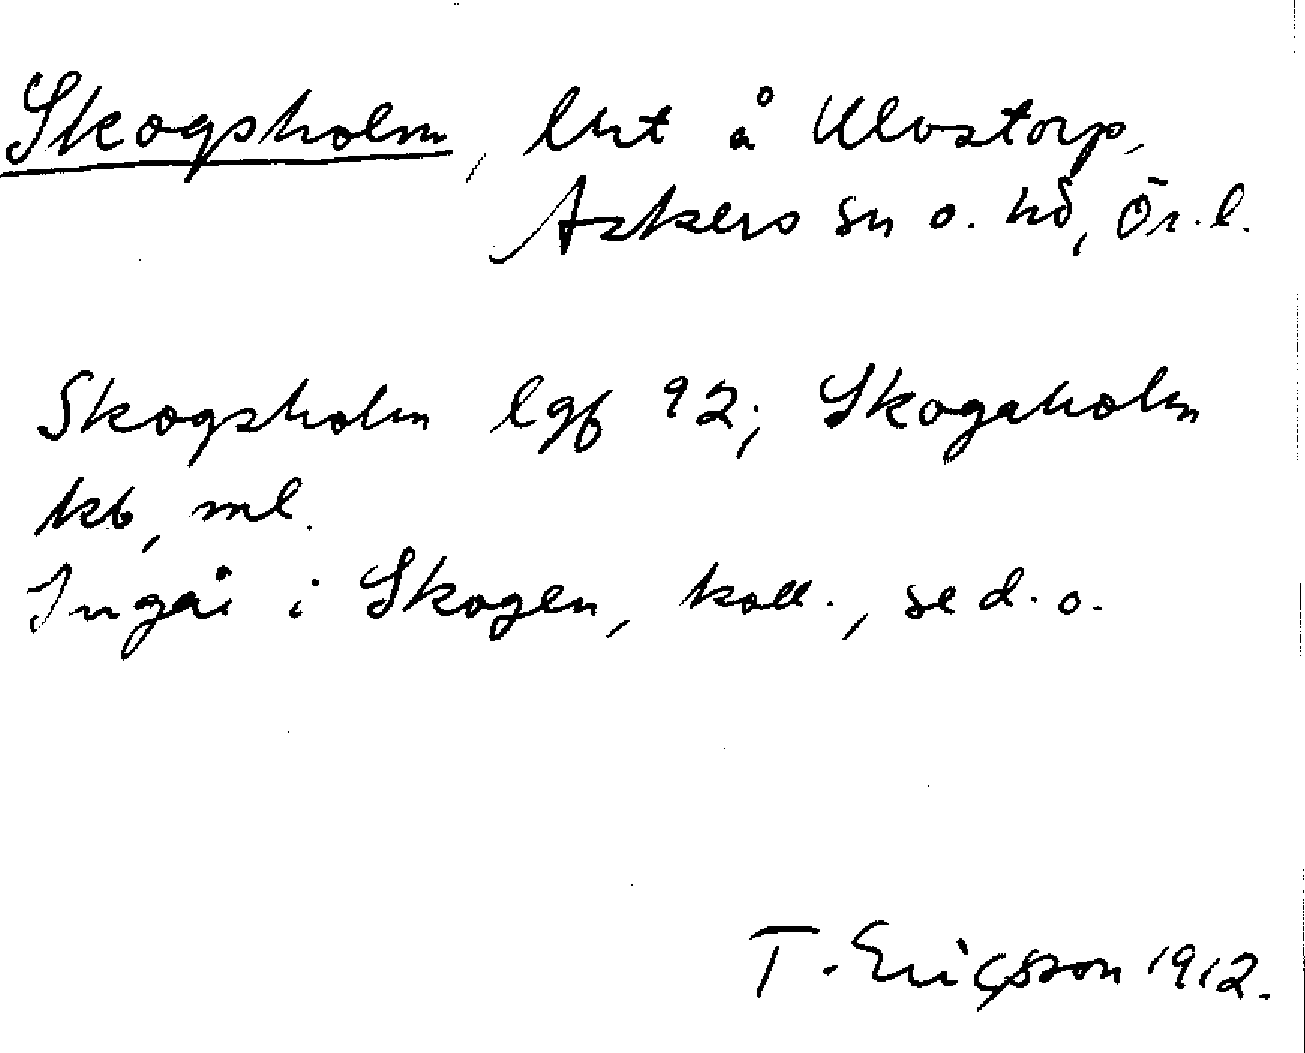 Skogsholm, lht å Ulvstorp,
Askers sn o. hd, Ör. l.
Skogsholm lgf 92; Skogaholm
kb, ml.
Ingår i Skogen, koll., se d. o.
T. Ericsson 1912.